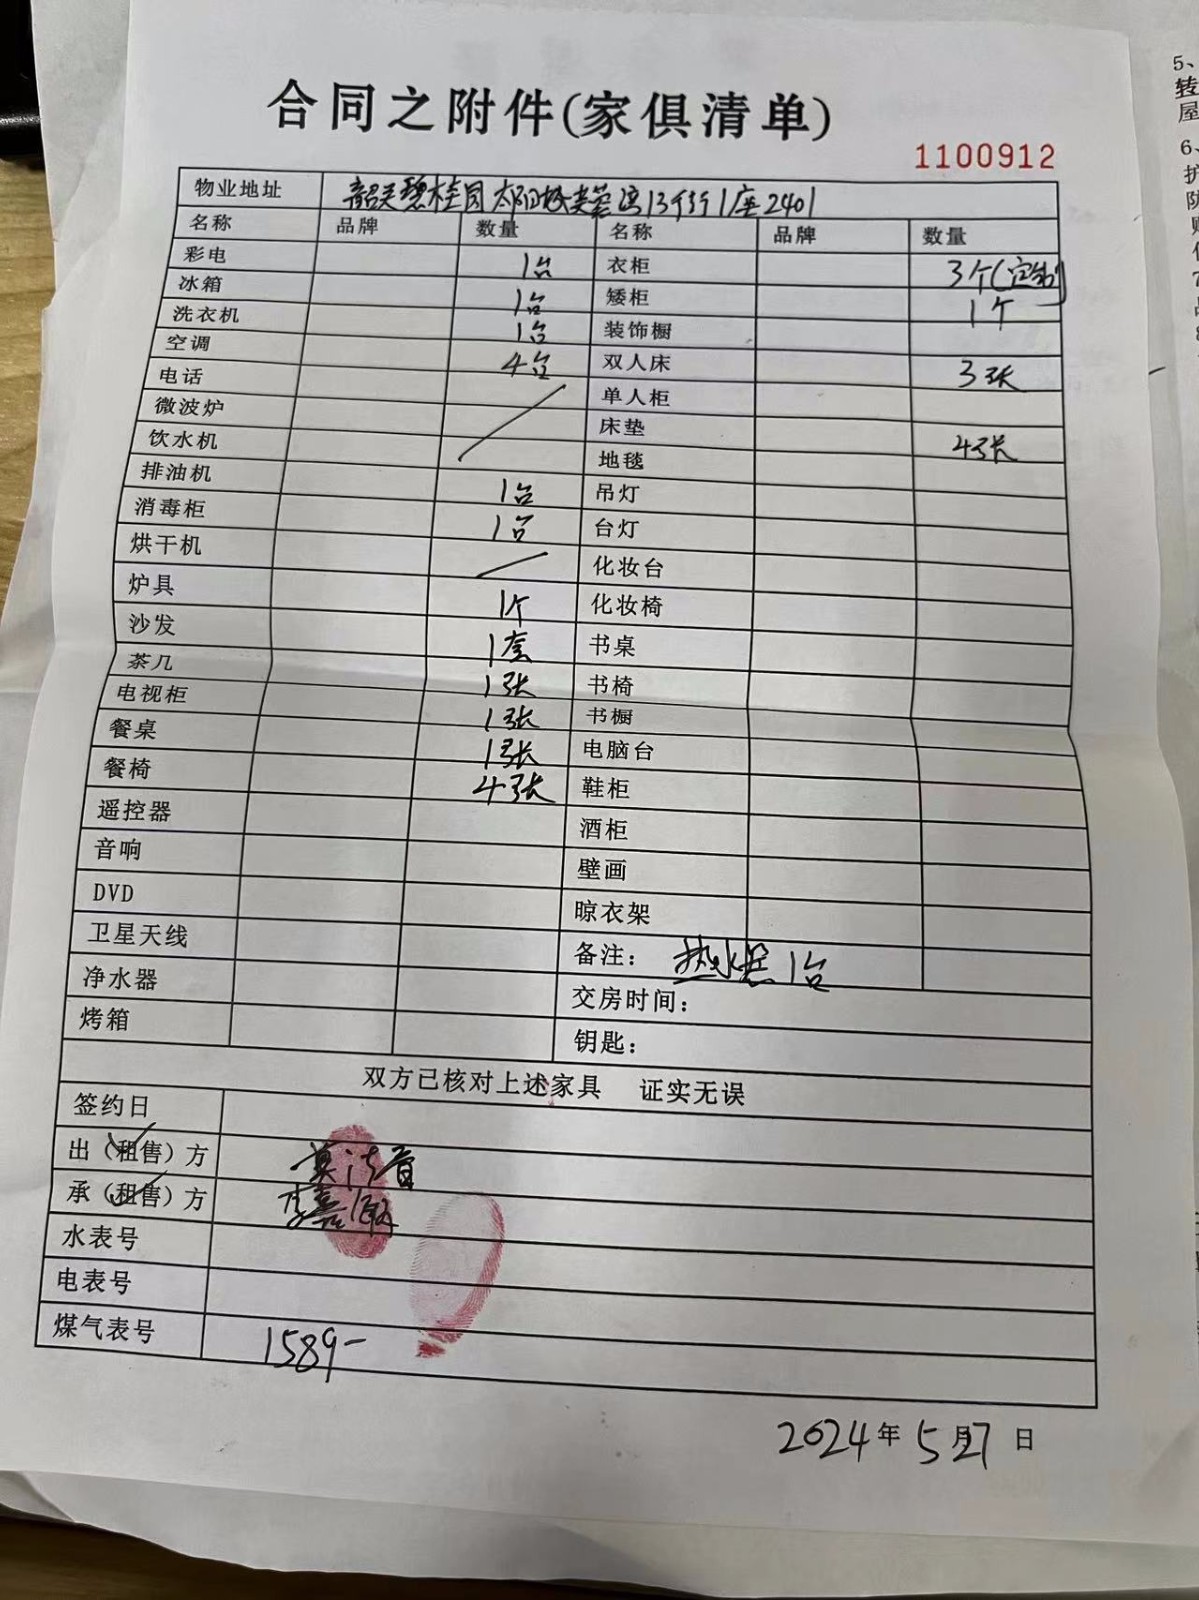 合同之附件(家俱清单)
1100912
物业地址 韶关碧桂园太阳城芙蓉湾13街1座2401
名称 品牌 数量 名称 品牌 数量
彩电 1台 衣柜 3个(定制)
冰箱 1台 矮柜 1个
洗衣机 1台 装饰橱
空调 4台 双人床 3张
电话 单人柜
微波炉 床垫 4张
饮水机 地毯
排油机 1台 吊灯
消毒柜 1台 台灯
烘干机 化妆台
炉具 1个 化妆椅
沙发 1套 书桌
茶几 1张 书椅
电视柜 1张 书橱
餐桌 1张 电脑台
餐椅 4张 鞋柜
遥控器 酒柜
音响 壁画
DVD 晾衣架
卫星天线 备注: 热水器1台
净水器 交房时间:
烤箱 钥匙:
双方已核对上述家具 证实无误
签约日
出(租售)方
承(租售)方
水表号
电表号
煤气表号 1589-
2024年5月27日
5、
转
屋
6、